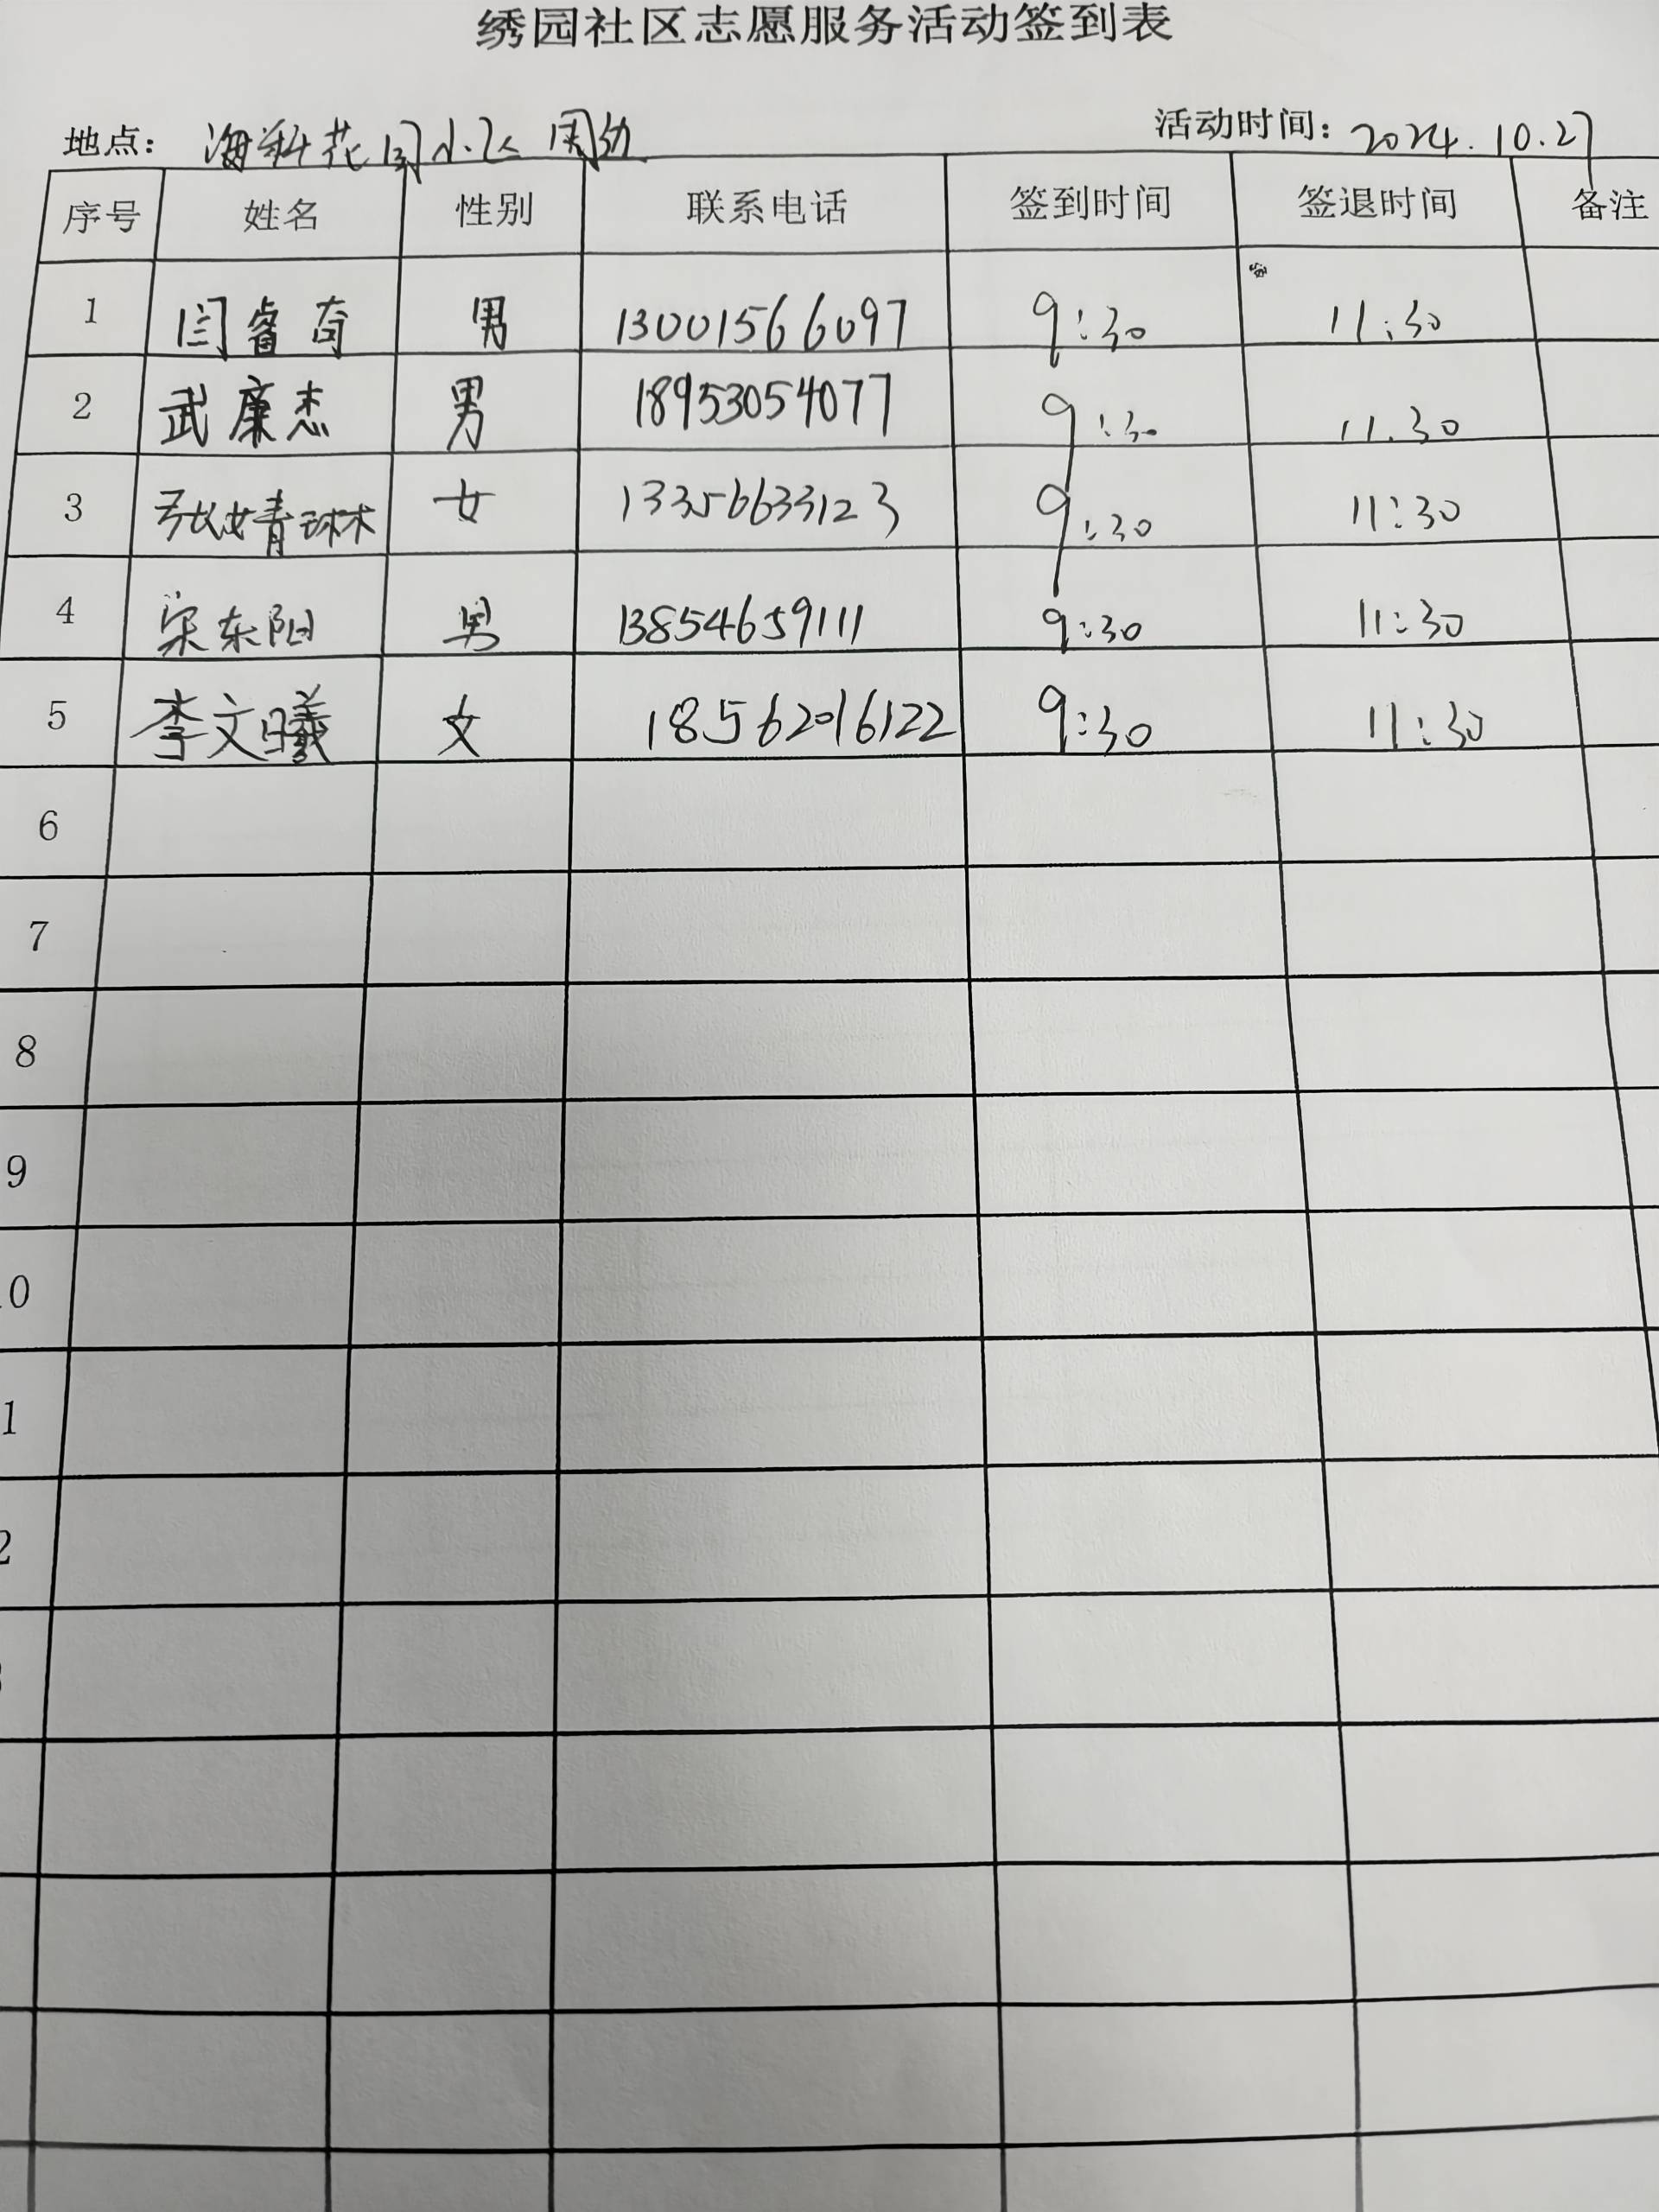 绣园社区志愿服务活动签到表
地点: 海科花园小区周边 活动时间: 2024.10.27
序号 姓名 性别 联系电话 签到时间 签退时间 备注
1 闫睿奇 男 13001566097 9:30 11:30
2 武廉杰 男 18953054077 9:30 11.30
3 张婧琳 女 13356633123 9:30 11:30
4 宋东阳 男 13854659111 9:30 11:30
5 李文曦 女 18562016122 9:30 11:30
6
7
8
9
0
1
2